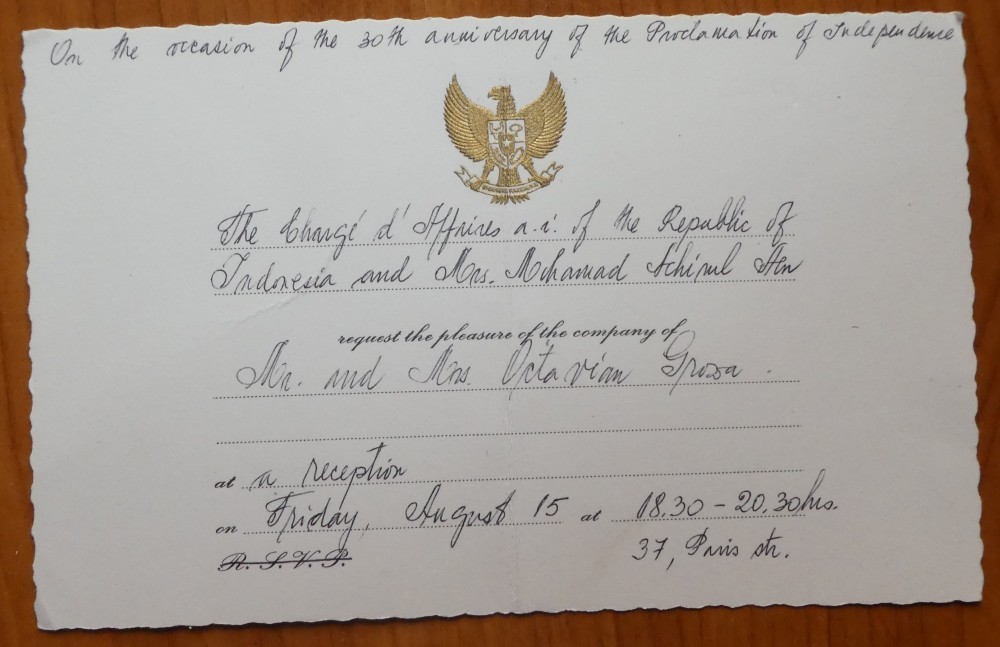 On the occasion of the 30th anniversary of the Proclamation of Independence
The Chargé d'Affaires a.i. of the Republic of
Indonesia and Mrs. Mohamad Achirul Aen
request the pleasure of the company of
Mr. and Mrs. Octavian Groza.
at a reception
on Friday, August 15 at 18.30 - 20.30 hrs.
R. S. V. P. 37, Paris str.